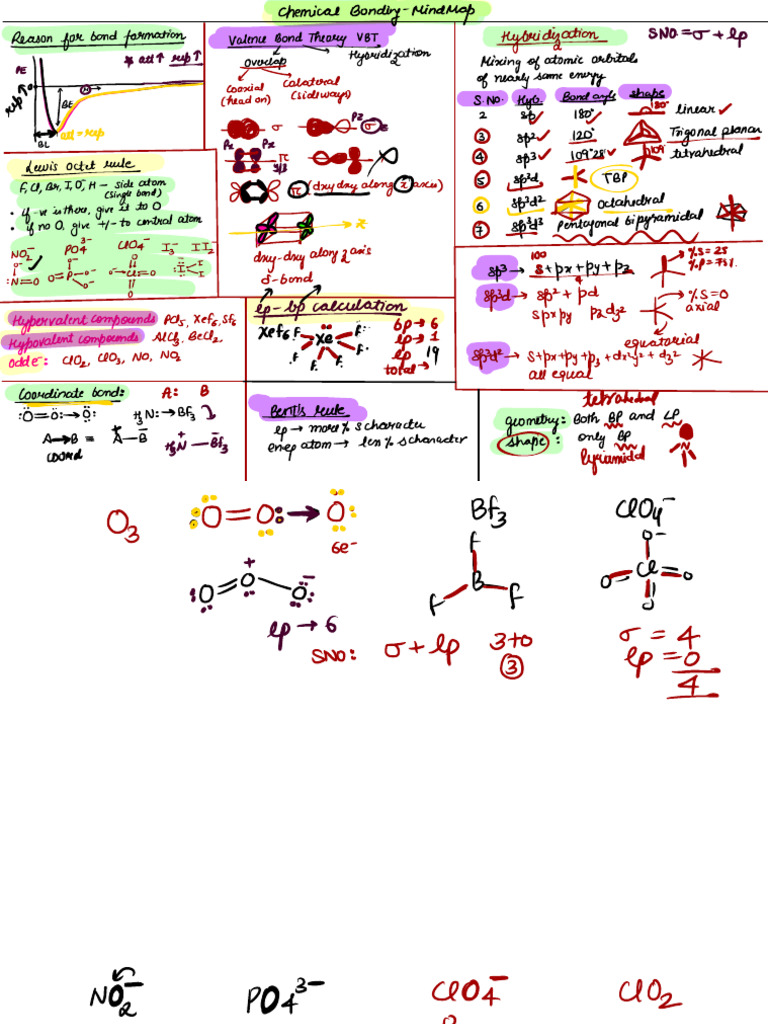 Chemical Bonding - MindMap
Reason for bond formation
* att ↑ rep ↑
PE
rep ↑
BE
att = rep
BL
Lewis octet rule
F, Cl, Br, I, O⁻, H - side atom
(single bond)
• if -ve is there, give it to O
• if no O, give +/- to central atom
NO₂⁻ PO₄³⁻ ClO₄⁻ I₃⁻ I I₂
O⁻
N = O
O⁻
O⁻ - P - O⁻
O
O
O⁻ - Cl = O
O
I I
I
Valence Bond Theory VBT
overlap
Hybridization
2
coaxial
(head on)
collateral
(sideways)
σ
Pz
σ
Px Px
π
π (dxy dxy along x axis)
z
dxy-dxy along z axis
δ-bond
Hybridization
2
SNO = σ + lp
Mixing of atomic orbitals
of nearly same energy
S.NO. Hyb. Bond angle shape
2 sp 180° 180° linear
3 sp2 120° Trigonal planar
4 sp3 109°28' 109° tetrahedral
5 sp3d TBP
6 sp3d2 octahedral
7 sp3d3 Pentagonal bipyramidal
sp3 → 100 s + px + py + pz
4
% S = 25
% P = 75%
sp3d → sp2 + pd
s px py pz dz2
% S = 0
axial
equatorial
sp3d2 → s + px + py + pz + dx2y2 + dz2
all equal
Hypervalent compounds PCl5, XeF6, SF6
Hypovalent compounds AlCl3, BeCl2,
odd e⁻: ClO2, ClO3, NO, NO2
lp - bp calculation
XeF6
F F
Xe
F F F F
bp → 6
lp → 1
lp 19
total →
Coordinate bond:
A: B
O = O: → O:
H3N: → BF3
A → B = A⁺ - B⁻
coord
H3N⁺ - BF3⁻
Bent's rule
lp → more % s character
en ep atom → less % s character
tetrahedral
geometry: Both BP and LP
shape: only BP
pyramidal
N
O3
O = O: → O:
6e⁻
O = O⁺ - O⁻
lp → 6
BF3
F
B
F F
SNO: σ + lp 3+0
3
ClO4⁻
O⁻
O = Cl = O
O
σ = 4
lp = 0
4
NO2⁻ PO4³⁻ ClO4⁻ ClO2